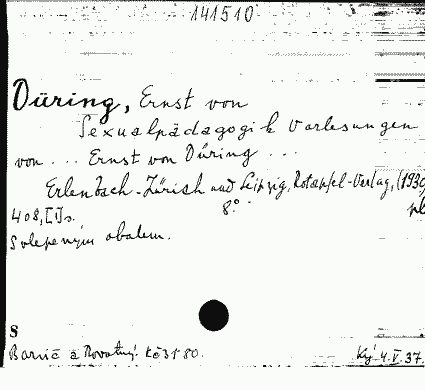 141510
Düring, Ernst von
Sexualpädagogik Vorlesungen
von ... Ernst von Düring ...
Erlenbach-Zürich und Leipzig, Rotapfel-Verlag, (1930
8°. pl
408,[1]s.
S olepeným obalem.
S
Barvič a Novotný. Kč 31·80. Ký 4.V.37.